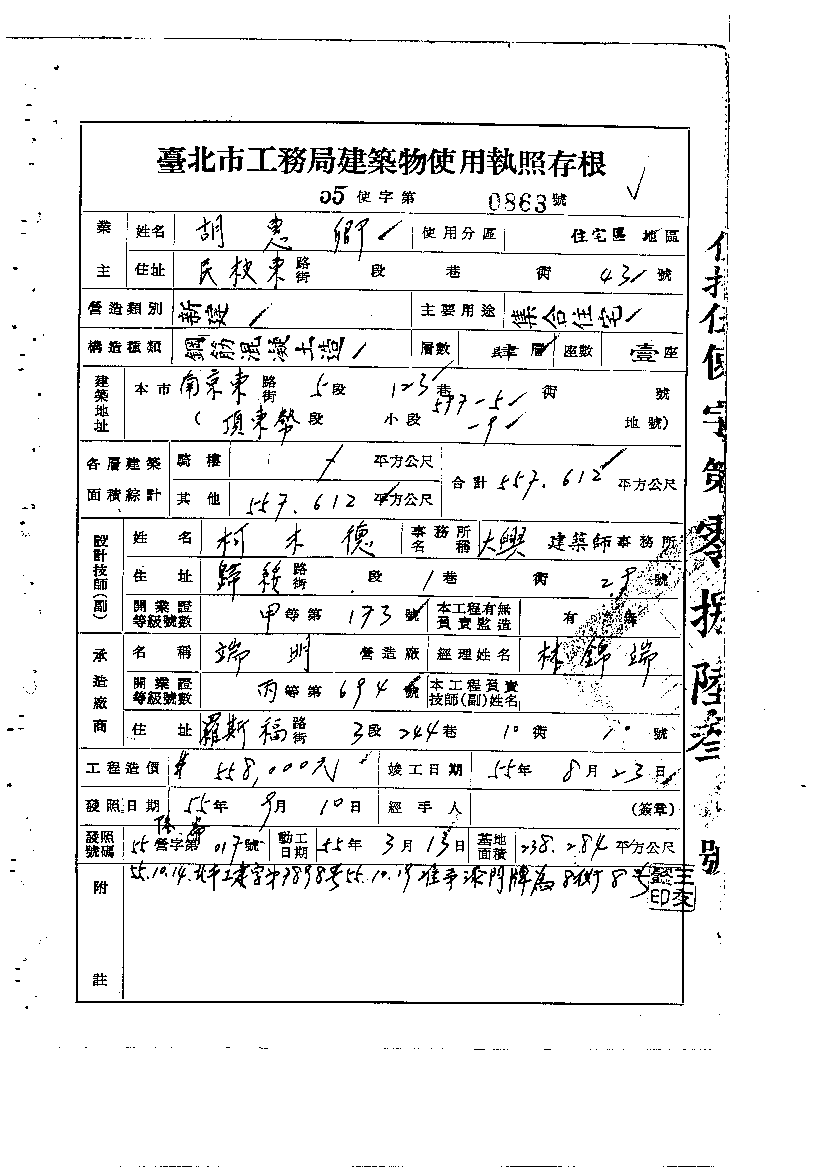 臺北市工務局建築物使用執照存根
55使字第 0863號
業主 姓名 胡惠卿 使用分區 住宅區地區
住址 民權東路街 段 巷 街 43號
營造類別 新建 主要用途 集合住宅
構造種類 鋼筋混凝土造 層數 肆層 座數 壹座
建築地址 本市 南京東路街 5段 123巷 街 號
(頂東勢段 小段 597-5 -9 地號)
各層建築面積綜計 騎樓 / 平方公尺 合計 557.612平方公尺
其他 557.612平方公尺
設計技師(副) 姓名 柯木德 事務所名稱 大興 建築師事務所
住址 歸綏路街 段 1巷 街 29號
開業證等級號數 甲等第173號 本工程有無負責監造 有 無
承造廠商 名稱 端明 營造廠 經理姓名 林錦端
開業證等級號數 丙等第694號 本工程負責技師(副)姓名
住址 羅斯福路街 3段 244巷 10街 10號
工程造價 558,000元 竣工日期 55年8月23日
發照日期 55年9月10日 經手人 (簽章)
發照號碼 55營字第017號 動工日期 55年3月13日 基地面積 238.284平方公尺
附註 55.10.14.北市工建字第 號55.10.19准予 門牌為8街8號
使字第零捌陸叁號